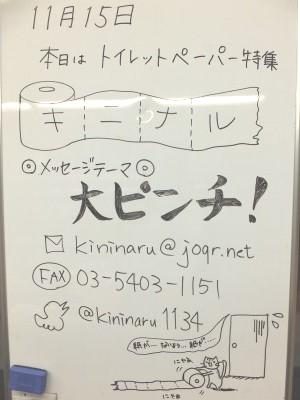 11月15日
本日は トイレットペーパー特集
キニナル
◎メッセージテーマ◎
大ピンチ！
kininaru@joqr.net
FAX 03-5403-1151
@kininaru1134
紙が… ないよう… 紙が…
にゃぁ
にゃぁ